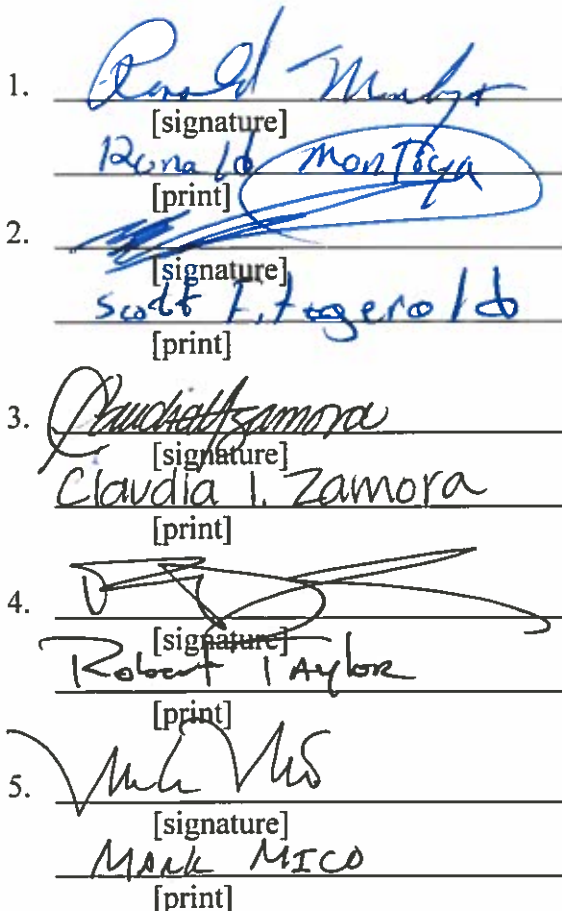 1. Ronald Montoya
[signature]
Ronald Montoya
[print]
2.
[signature]
Scott Fitzgerald
[print]
3. Claudia I Zamora
[signature]
Claudia I. Zamora
[print]
4.
[signature]
Robert Taylor
[print]
5. Mark Mico
[signature]
MARK MICO
[print]